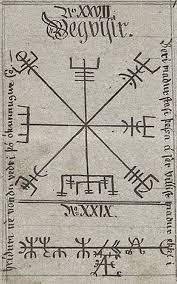 Vegvísir.
Beri madur stafi þessa á sér villist madur ekki í
hridum né vondu vedri þó ókunnugur sé
No. XXIX.